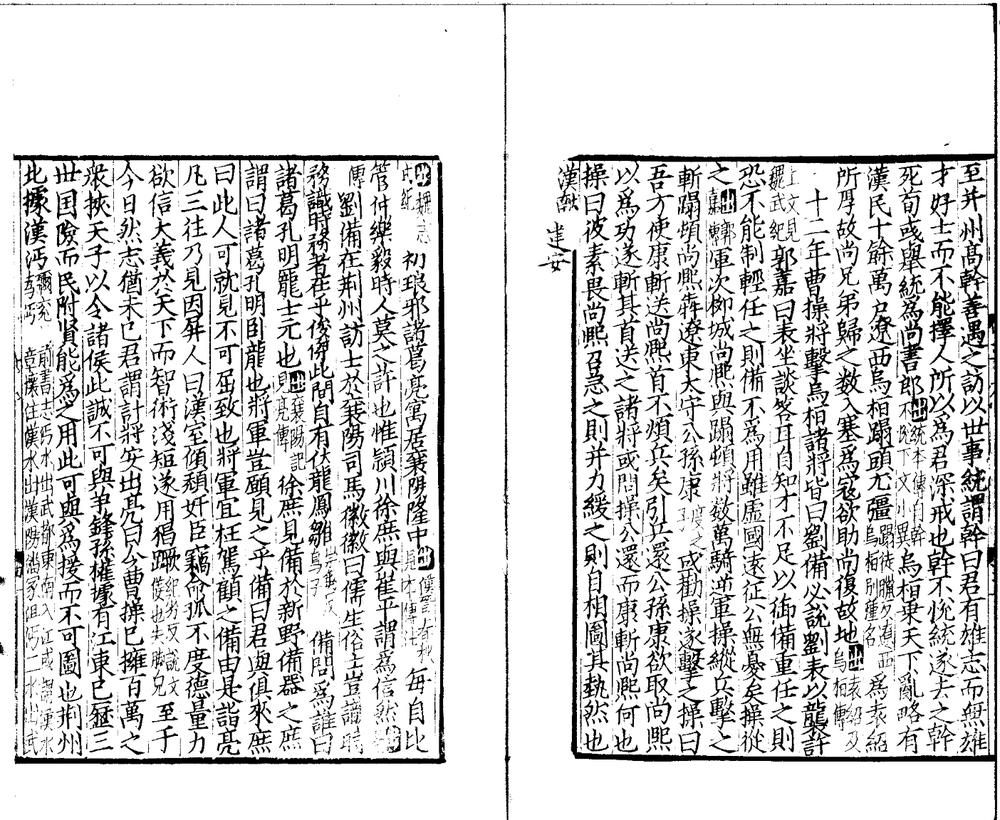 至并州高幹善遇之訪以世事統謂幹曰君有雄志而無雄
才好士而不能擇人所以為君深戒也幹不恱統遂去之幹
死荀彧舉統為尚書郎出統本傳自幹不恱下文小異烏桓乗天下亂略有
漢民十餘萬户遼西烏桓蹋頭尤彊蹋徒臘反遼西烏桓別種名為袁紹
所厚故尚兄弟歸之數入塞為寇欲助尚復故地出袁紹及烏桓傳
十二年曹操將擊烏桓諸將皆曰劉備必説劉表以襲許
上文見魏武紀郭嘉曰表坐談客耳自知才不足以御備重任之則
恐不能制輕任之則備不為用雖虚國遠征公無憂矣操從
之出郭嘉傳軍次柳城尚熙與蹋頓將數萬騎逆軍操縱兵擊之
斬蹋頓尚熙犇遼東大守公孫康度之子或勸操遂擊之操曰
吾方使康斬送尚熙首不煩兵矣引兵還公孫康欲取尚熙
以為功遂斬其首送之諸將或問操公還而康斬尚熙何也
操曰彼素畏尚熙召急之則并力緩之則自相圖其埶然也
漢獻
建安
出魏志武紀初琅邪諸葛亮寓居襄陽隆中每自比
管仲樂毅時人莫之許也惟潁川徐庶與崔平謂為信然出本
傳劉備在荆州訪士於襄陽司馬徽徽曰儒生俗士豈識時
務識時務者在乎俊傑此間自有伏龍鳳雛備問為誰曰
諸葛孔明龐士元也出襄陽記見亮傳徐庶見備於新野備器之庶
謂曰諸葛孔明卧龍也將軍豈願見之乎備曰君與俱來庶
曰此人可就見不可屈致也將軍宜枉駕顧之備由是詣亮
凡三往乃見因屏人曰漢室傾頽奸臣竊命孤不度德量力
欲信大義於天下而智術淺短遂用猖蹶至于
今日然志猶未已君謂計將安出亮曰今曹操已擁百萬之
衆挾天子以令諸侯此誠不可與爭鋒孫權據有江東已歷三
世国險而民附賢能為之用此可與為援而不可圖也荆州
北據漢沔